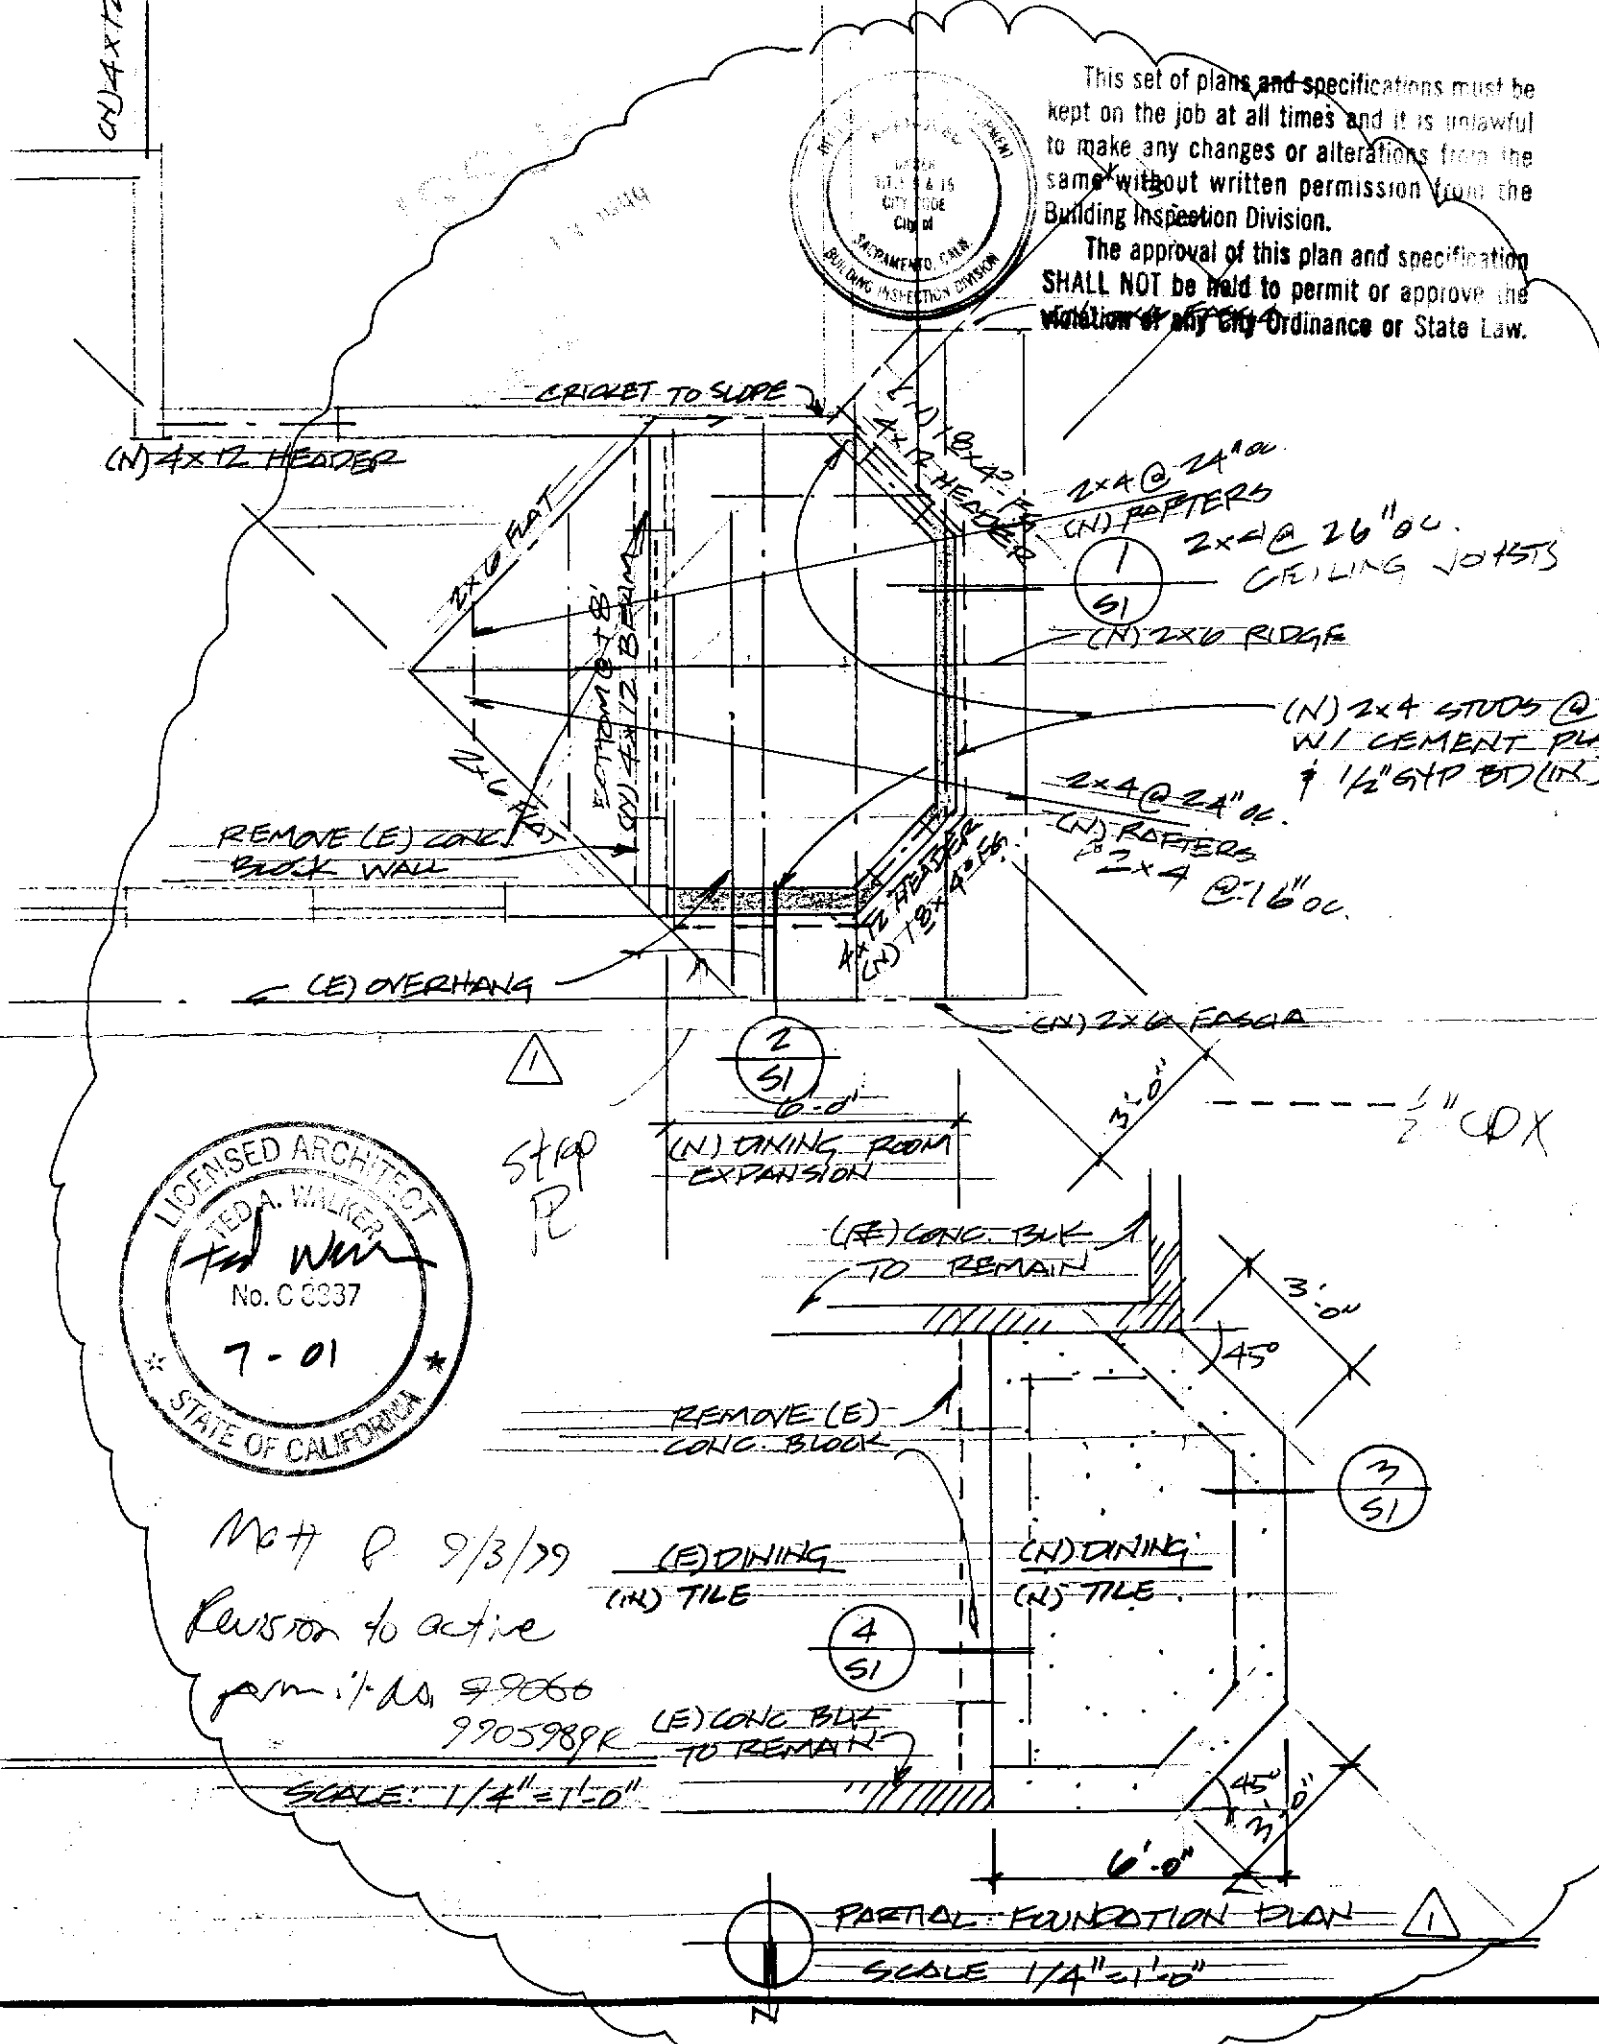 (N) 4x12
This set of plans and specifications must be
kept on the job at all times and it is unlawful
to make any changes or alterations from the
same without written permission from the
Building Inspection Division.
The approval of this plan and specification
SHALL NOT be held to permit or approve the
violation of any City Ordinance or State Law.
CITY CODE
City of
SACRAMENTO, CALIF.
BUILDING INSPECTION DIVISION
CRICKET TO SLOPE
(N) 4x12 HEADER
(N) 1'8x4'0 FG
4x12 HEADER
2x4 @ 24" oc.
(N) RAFTERS
2x4 @ 26" oc.
CEILING JOISTS
1
S1
2x6 FLAT
BOTTOM @ +8'
(N) 4x12 BEAM
(N) 2x6 RIDGE
(N) 2x4 STUDS @
W/ CEMENT PLA
& 1/2" GYP BD (IN)
2x6 FLAT
2x4 @ 24" oc.
(N) RAFTERS
2x4 @ 16" oc.
REMOVE (E) CONC.
BLOCK WALL
4x12 HEADER
(N) 1'8x4'0 FG
(E) OVERHANG
(N) 2x6 FASCIA
1
2
S1
6'-0"
3'-0"
1/2" CDX
(N) DINING ROOM
EXPANSION
strap
PL
LICENSED ARCHITECT
TED A. WALKER
No. C 8337
7-01
STATE OF CALIFORNIA
(E) CONC. BLK
TO REMAIN
3'-0"
45°
REMOVE (E)
CONC. BLOCK
3
S1
Matt P 9/3/99
Revision to active
permit no. 99066
9905989R
(E) DINING
(N) TILE
(N) DINING
(N) TILE
4
S1
(E) CONC BLK
TO REMAIN
SCALE: 1/4"=1'-0"
45°
3'-0"
6'-0"
PARTIAL FOUNDATION PLAN
1
SCALE 1/4"=1'-0"
N